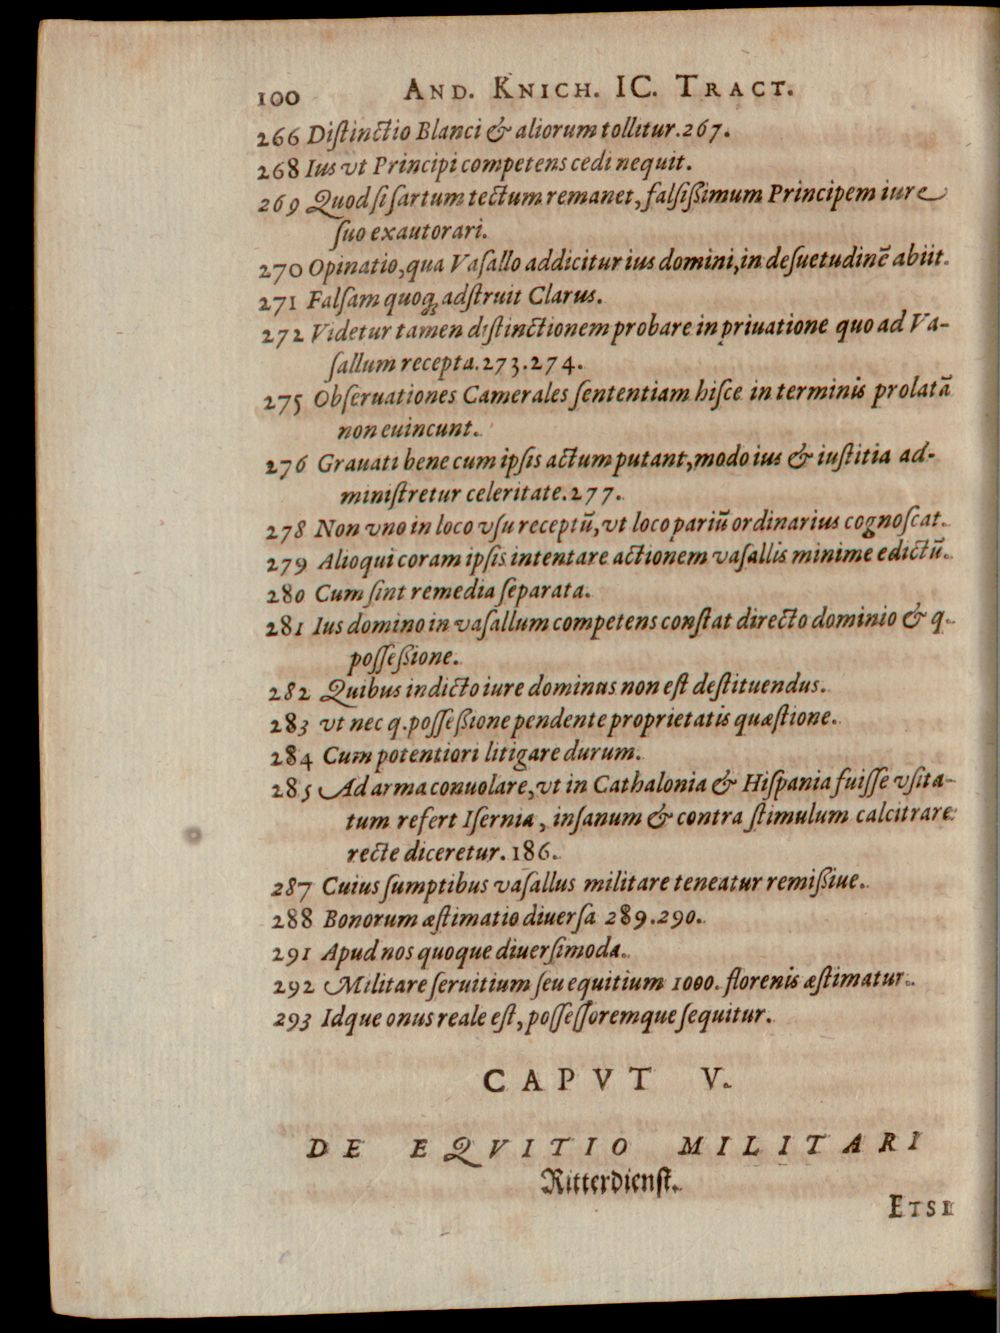 100 AND. KNICH. IC. TRACT.
266 Diſtinctio Blanci & aliorum tollitur. 267.
268 Ius vt Principi competens cedi nequit.
269 Quod ſi ſartum tectum remanet, falſißimum Principem iure
ſuo exautorari.
270 Opinatio, qua Vaſallo addicitur ius domini, in deſuetudinē abiit.
271 Falſam quoq₃ adſtruit Clarus.
272 Videtur tamen diſtinctionem probare in priuatione quo ad Va-
ſallum recepta. 273. 274.
275 Obſeruationes Camerales ſententiam hiſce in terminis prolatā
non euincunt.
276 Grauati bene cum ipſis actum putant, modo ius & iuſtitia ad-
miniſtretur celeritate. 277.
278 Non vno in loco vſu receptū, vt loco pariū ordinarius cognoſcat.
279 Alioqui coram ipſis intentare actionem vaſallis minime edictū.
280 Cum ſint remedia ſeparata.
281 Ius domino in vaſallum competens conſtat directo dominio & q.
poſſeßione.
282 Quibus indicto iure dominus non eſt deſtituendus.
283 vt nec q. poſſeßione pendente proprietatis quæſtione.
284 Cum potentiori litigare durum.
285 Ad arma conuolare, vt in Cathalonia & Hiſpania fuiſſe vſita-
tum refert Iſernia, inſanum & contra ſtimulum calcitrare
recte diceretur. 186.
287 Cuius ſumptibus vaſallus militare teneatur remißiue.
288 Bonorum æſtimatio diuerſa 289. 290.
291 Apud nos quoque diuerſimoda.
292 Militare ſeruitium ſeu equitium 1000. florenis æſtimatur.
293 Idque onus reale eſt, poſſeſſoremque ſequitur.
CAPVT V.
DE EQVITIO MILITARI
Ritterdienſt.
ETSI